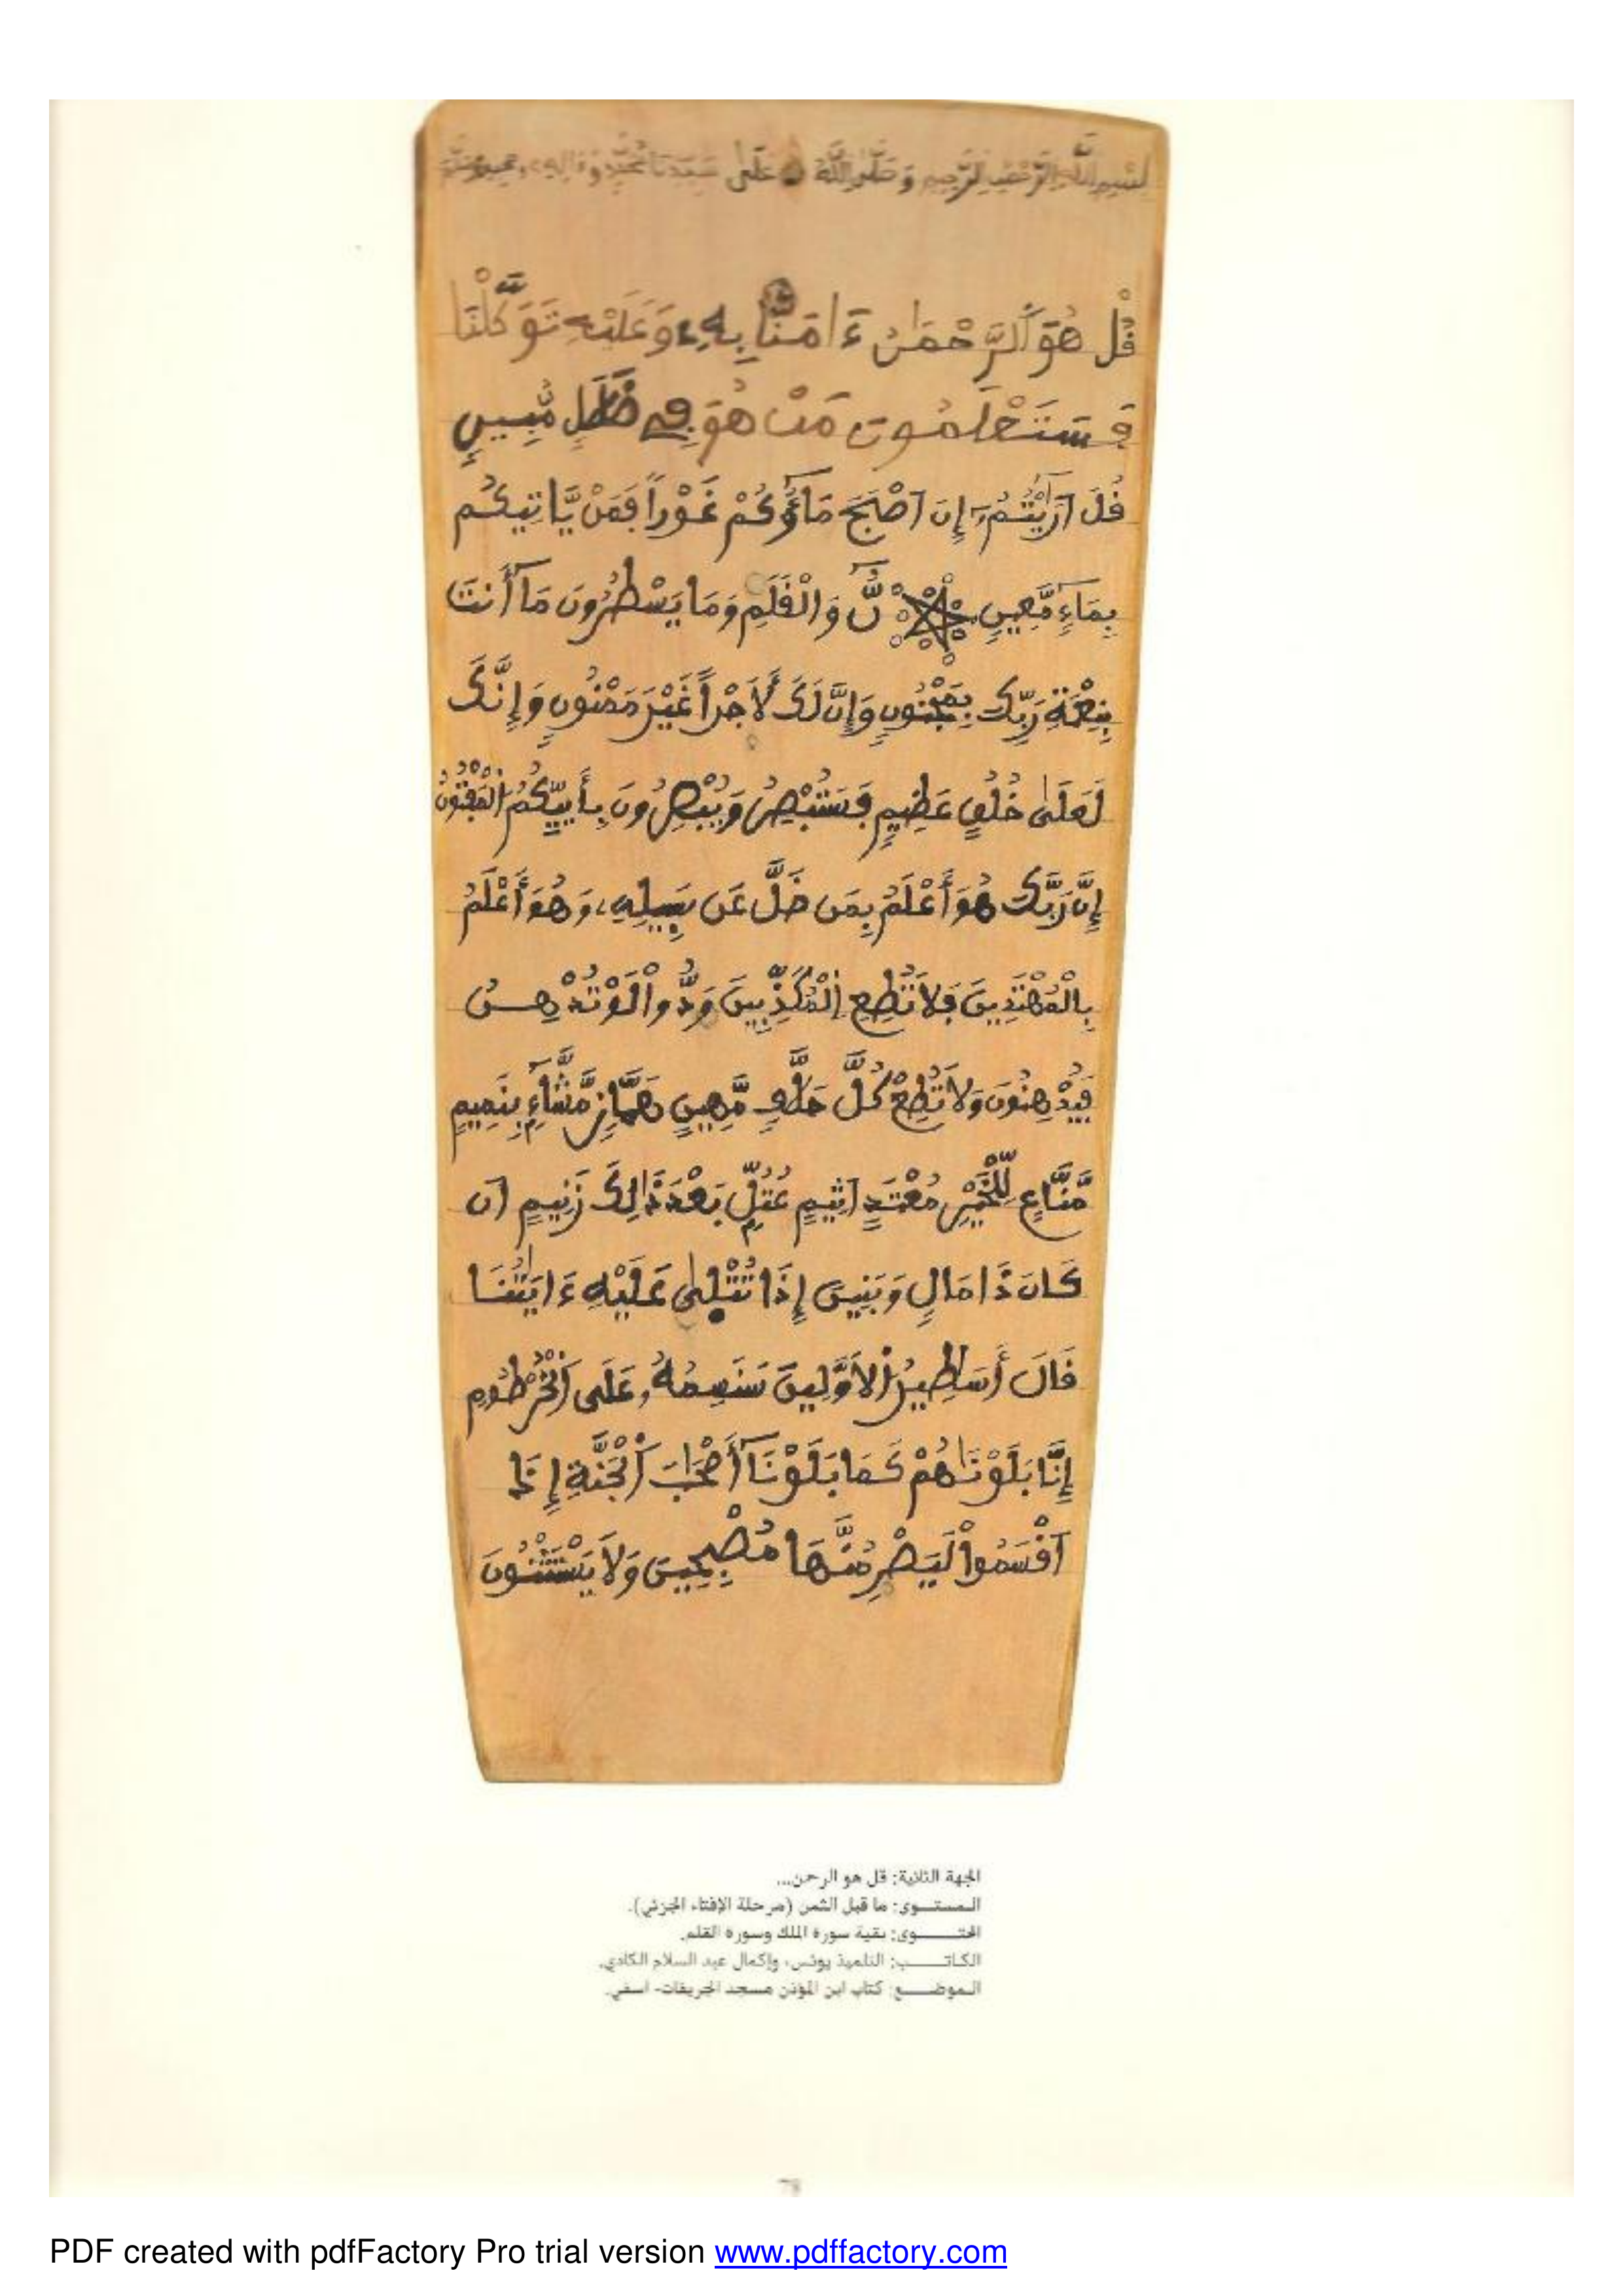 بِسْمِ اللَّهِ الرَّحْمَنِ الرَّحِيمِ وَصَلَّى اللَّهُ عَلَى سَيِّدِنَا مُحَمَّدٍ وَءَالِهِ وَصَحْبِهِ وَسَلَّمَ
قُلْ هُوَ اَ۬لرَّحْمَٰنُ ءَامَنَّا بِهِۦ وَعَلَيْهِ تَوَكَّلْنَا
فَسَتَعْلَمُونَ مَنْ هُوَ فِے ضَلَٰلٖ مُّبِينٖ
قُلَ اَرَٰٓيْتُمُۥٓ إِنَ اَصْبَحَ مَآؤُكُمْ غَوْراٗ فَمَنْ يَّاتِيكُم
بِمَآءٖ مَّعِينٖ نَّ وَالْقَلَمِ وَمَا يَسْطُرُونَ مَآ أَنتَ
بِنِعْمَةِ رَبِّكَ بِمَجْنُونٖ وَإِنَّ لَكَ لَأَجْراً غَيْرَ مَمْنُونٖ وَإِنَّكَ
لَعَلَىٰ خُلُقٍ عَظِيمٖ فَسَتُبْصِرُ وَيُبْصِرُونَ بِأَييِّكُمُ اُ۬لْمَفْتُونُ
إِنَّ رَبَّكَ هُوَ أَعْلَمُ بِمَن ضَلَّ عَن سَبِيلِهِۦ وَهُوَ أَعْلَمُ
بِالْمُهْتَدِينَ فَلَا تُطِعِ اِ۬لْمُكَذِّبِينَ وَدُّواْ لَوْ تُدْهِنُ
فَيُدْهِنُونَ وَلَا تُطِعْ كُلَّ حَلَّافٖ مَّهِينٍ هَمَّازٖ مَّشَّآءِۢ بِنَمِيمٖ
مَّنَّاعٖ لِّلْخَيْرِ مُعْتَدٍ اَثِيمٍ عُتُلِّۢ بَعْدَ ذَٰلِكَ زَنِيمٍ اَن
كَانَ ذَا مَالٖ وَبَنِينَ إِذَا تُتْلَىٰ عَلَيْهِ ءَايَٰتُنَا
قَالَ أَسَٰطِيرُ اُ۬لَاوَّلِينَ سَنَسِمُهُۥ عَلَى اَ۬لْخُرْطُومِ
إِنَّا بَلَوْنَٰهُمْ كَمَا بَلَوْنَآ أَصْحَٰبَ اَ۬لْجَنَّةِ إِذَ
اَقْسَمُواْ لَيَصْرِمُنَّهَا مُصْبِحِينَ وَلَا يَسْتَثْنُونَ
الجهة الثانية: قل هو الرحمن...
المستوى: ما قبل الثمن (مرحلة الإفتاء الجزئي).
المحتوى: بقية سورة الملك وسورة القلم.
الكاتب: التلميذ يونس، وإكمال عبد السلام الكادي.
الموضع: كتاب ابن المؤذن مسجد الجريفات- اسفي.
PDF created with pdfFactory Pro trial version www.pdffactory.com